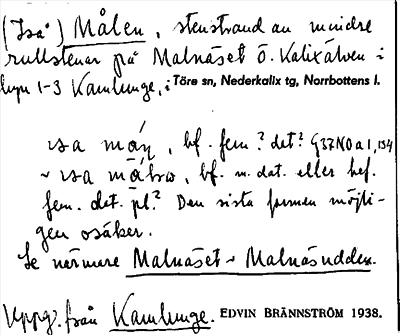 (Isa°) Målen, stenstrand av mindre
rullstenar på Malnäset ö. Kalixälven i
byn 1-3 Kamlunge, i Töre sn, Nederkalix tg, Norrbottens l.
isa , bf. fem.? det? G37NOa1,134
~ isa , bf. m. det. eller bef.
fem. det. pl? Den sista formen möjli-
gen osäker.
Se närmare Malnäset ~ Malnäsudden.
Uppg. från Kamlunge. EDVIN BRÄNNSTRÖM 1938.